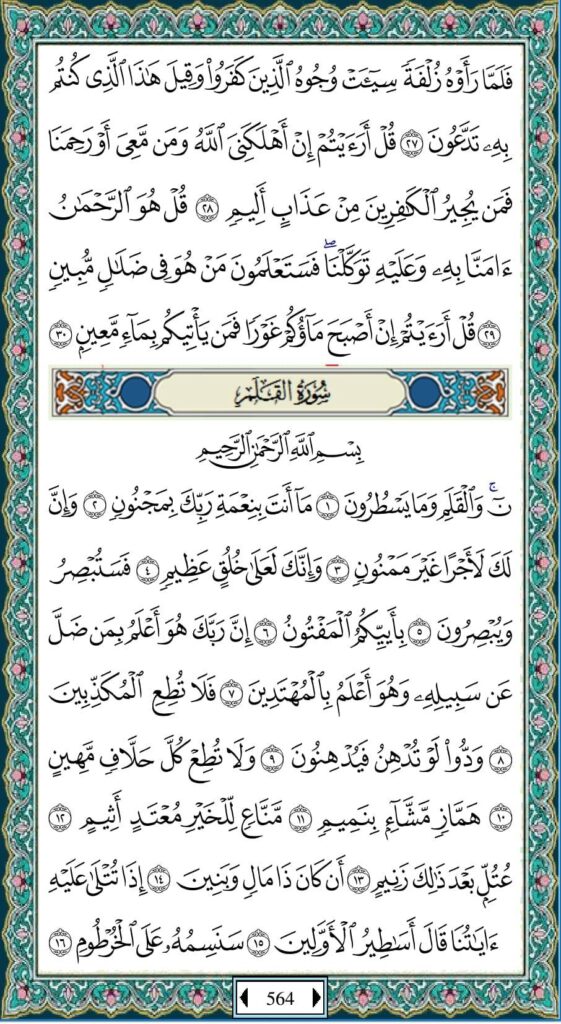 فَلَمَّا رَأَوْهُ زُلْفَةً سِيٓـَٔتْ وُجُوهُ ٱلَّذِينَ كَفَرُوا۟ وَقِيلَ هَـٰذَا ٱلَّذِى كُنتُم
بِهِۦ تَدَّعُونَ ٢٧ قُلْ أَرَءَيْتُمْ إِنْ أَهْلَكَنِىَ ٱللَّهُ وَمَن مَّعِىَ أَوْ رَحِمَنَا
فَمَن يُجِيرُ ٱلْكَـٰفِرِينَ مِنْ عَذَابٍ أَلِيمٍ ٢٨ قُلْ هُوَ ٱلرَّحْمَـٰنُ
ءَامَنَّا بِهِۦ وَعَلَيْهِ تَوَكَّلْنَا ۖ فَسَتَعْلَمُونَ مَنْ هُوَ فِى ضَلَـٰلٍ مُّبِينٍ
٢٩ قُلْ أَرَءَيْتُمْ إِنْ أَصْبَحَ مَآؤُكُمْ غَوْرًا فَمَن يَأْتِيكُم بِمَآءٍ مَّعِينٍۭ ٣٠
سُورَةُ القَلَمِ
بِسْمِ ٱللَّهِ ٱلرَّحْمَـٰنِ ٱلرَّحِيمِ
نٓ ۚ وَٱلْقَلَمِ وَمَا يَسْطُرُونَ ١ مَآ أَنتَ بِنِعْمَةِ رَبِّكَ بِمَجْنُونٍ ٢ وَإِنَّ
لَكَ لَأَجْرًا غَيْرَ مَمْنُونٍ ٣ وَإِنَّكَ لَعَلَىٰ خُلُقٍ عَظِيمٍ ٤ فَسَتُبْصِرُ
وَيُبْصِرُونَ ٥ بِأَييِّكُمُ ٱلْمَفْتُونُ ٦ إِنَّ رَبَّكَ هُوَ أَعْلَمُ بِمَن ضَلَّ
عَن سَبِيلِهِۦ وَهُوَ أَعْلَمُ بِٱلْمُهْتَدِينَ ٧ فَلَا تُطِعِ ٱلْمُكَذِّبِينَ
٨ وَدُّوا۟ لَوْ تُدْهِنُ فَيُدْهِنُونَ ٩ وَلَا تُطِعْ كُلَّ حَلَّافٍ مَّهِينٍ
١٠ هَمَّازٍ مَّشَّآءٍۭ بِنَمِيمٍ ١١ مَّنَّاعٍ لِّلْخَيْرِ مُعْتَدٍ أَثِيمٍ ١٢
عُتُلٍّۭ بَعْدَ ذَٰلِكَ زَنِيمٍ ١٣ أَن كَانَ ذَا مَالٍ وَبَنِينَ ١٤ إِذَا تُتْلَىٰ عَلَيْهِ
ءَايَـٰتُنَا قَالَ أَسَـٰطِيرُ ٱلْأَوَّلِينَ ١٥ سَنَسِمُهُۥ عَلَى ٱلْخُرْطُومِ ١٦
564